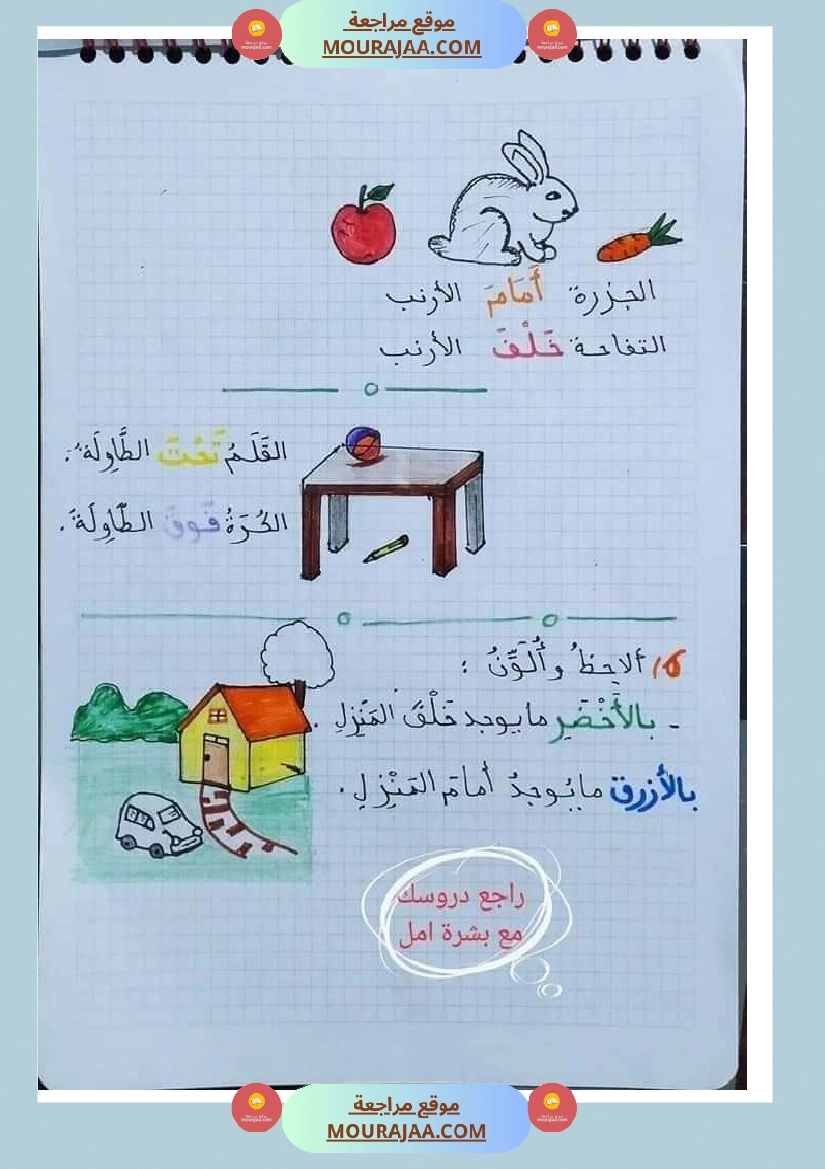 موقع مراجعة
MOURAJAA.COM
الجزرة أَمَامَ الأرنب
التفاحة خَلْفَ الأرنب
القَلَمُ تَحْتَ الطَّاوِلَةِ.
الكُرَةُ فَوقَ الطَّاوِلَةِ.
ألاحِظُ وأُلَوِّنُ :
- بالأَخْضَرِ ما يوجد خَلْفَ المَنْزِلِ.
بالأزرق ما يُوجدُ أمامَ المَنْزِلِ.
راجع دروسك
مع بشرة امل
موقع مراجعة
MOURAJAA.COM